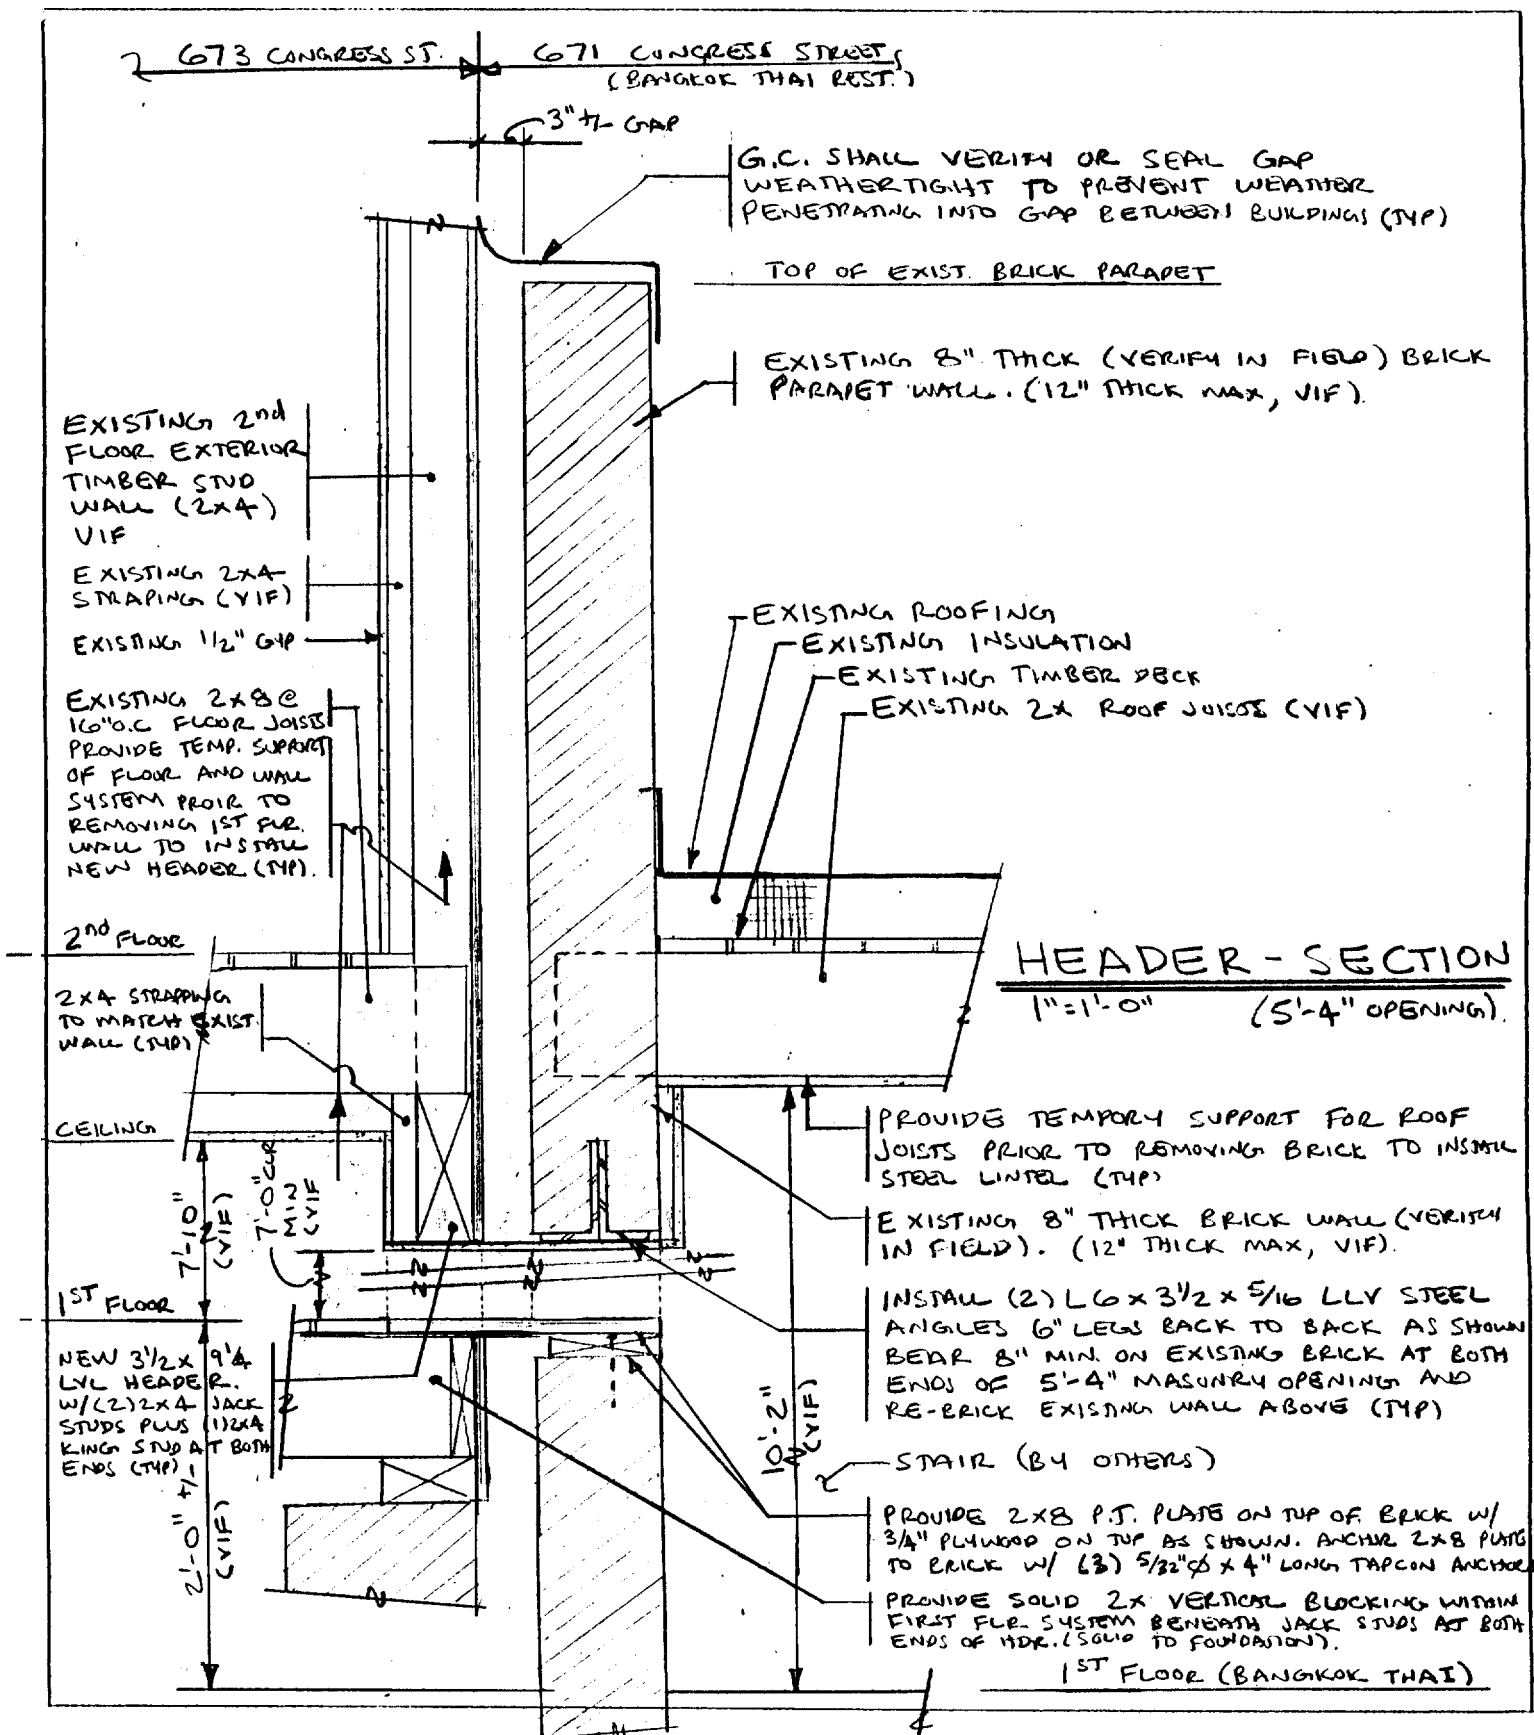 673 CONGRESS ST.
671 CONGRESS STREET
(BANGKOK THAI REST.)
3" +/- GAP
G.C. SHALL VERIFY OR SEAL GAP
WEATHERTIGHT TO PREVENT WEATHER
PENETRATING INTO GAP BETWEEN BUILDINGS (TYP)
TOP OF EXIST. BRICK PARAPET
EXISTING 8" THICK (VERIFY IN FIELD) BRICK
PARAPET WALL. (12" THICK MAX, VIF).
EXISTING 2nd
FLOOR EXTERIOR
TIMBER STUD
WALL (2x4)
VIF
EXISTING 2x4
STRAPING (VIF)
EXISTING 1/2" GYP
EXISTING 2x8 @
16" O.C FLOOR JOISTS
PROVIDE TEMP. SUPPORT
OF FLOOR AND WALL
SYSTEM PROIR TO
REMOVING 1ST FLR.
WALL TO INSTALL
NEW HEADER (TYP).
EXISTING ROOFING
EXISTING INSULATION
EXISTING TIMBER DECK
EXISTING 2x ROOF JOISTS (VIF)
2nd FLOOR
HEADER - SECTION
1"=1'-0" (5'-4" OPENING).
2x4 STRAPPING
TO MATCH EXIST.
WALL (TYP)
CEILING
7'-10"
(VIF)
7'-0" CLR
MIN
(VIF
PROVIDE TEMPORY SUPPORT FOR ROOF
JOISTS PRIOR TO REMOVING BRICK TO INSTALL
STEEL LINTEL (TYP)
EXISTING 8" THICK BRICK WALL (VERIFY
IN FIELD). (12" THICK MAX, VIF).
1ST FLOOR
INSTALL (2) L6 x 3 1/2 x 5/16 LLV STEEL
ANGLES 6" LEGS BACK TO BACK AS SHOWN
BEAR 8" MIN. ON EXISTING BRICK AT BOTH
ENDS OF 5'-4" MASONRY OPENING AND
RE-BRICK EXISTING WALL ABOVE (TYP)
NEW 3 1/2 x 9 1/4
LVL HEADER.
W/(2) 2x4 JACK
STUDS PLUS (1) 2x4
KING STUD AT BOTH
ENDS (TYP)
2'-0" +/-
(VIF)
10'-2"
(VIF)
STAIR (BY OTHERS)
PROVIDE 2x8 P.T. PLATE ON TOP OF BRICK W/
3/4" PLYWOOD ON TOP AS SHOWN. ANCHOR 2x8 PLATE
TO BRICK W/ (3) 5/32"Ø x 4" LONG TAPCON ANCHORS
PROVIDE SOLID 2x VERTICAL BLOCKING WITHIN
FIRST FLR SYSTEM BENEATH JACK STUDS AT BOTH
ENDS OF HDR. (SOLID TO FOUNDATION).
1ST FLOOR (BANGKOK THAI)